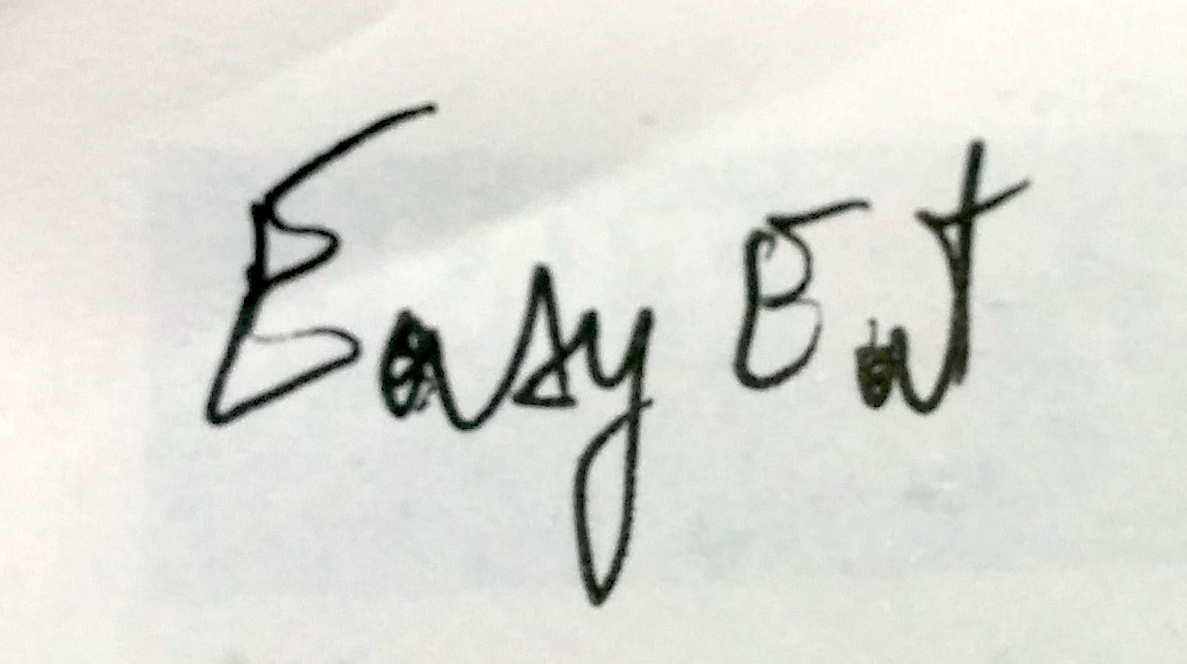 Easy Eat